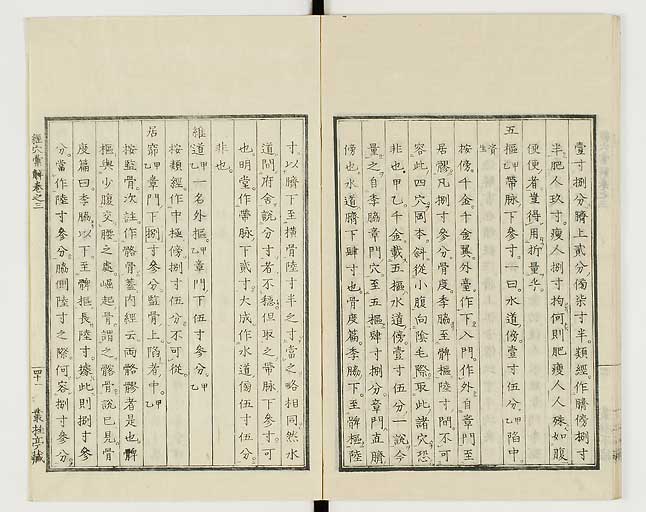 壹寸捌分臍上貳分傍柒寸半類經作臍傍捌寸
半肥人玖寸瘦人捌寸拘何則肥瘦人人殊如腹
便便者豈得用折量乎
五樞甲乙帶脈下參寸一曰水道傍壹寸伍分甲乙陷中
資生
按傍千金千金翼外臺作下入門作外自章門至
居髎凡捌寸參分骨度季脇至髀樞陸寸間不可
容此四穴圖本斜從小腹向陰毛際取此諸穴恐
非也甲乙千金載五樞水道傍壹寸伍分一說今
量之自季脇章門穴至五樞肆寸捌分章門直臍
傍也水道臍下肆寸也骨度篇季脇下至髀樞陸
寸以臍下至橫骨陸寸半之寸當之略相同然水
道問府舍說分寸者不穩但取之帶脈下參寸可
也明堂作帶脈下貳寸大成作水道傍伍寸伍分
非也
維道甲乙一名外樞甲乙章門下伍寸參分甲乙
按類經作中極傍捌寸伍分不可從
居髎甲乙章門下捌寸參分監骨上陷者中甲乙
按監骨次註作髂骨蓋內經云兩髂髎者是也髀
樞與少腹交腰之處崛起骨謂之髂骨說已見骨
度篇曰季脇以下至髀樞長陸寸據此則捌寸參
分當作陸寸參分脇側陸寸之際何容捌寸參分
經穴彙解卷之三
四十一
叢桂亭藏